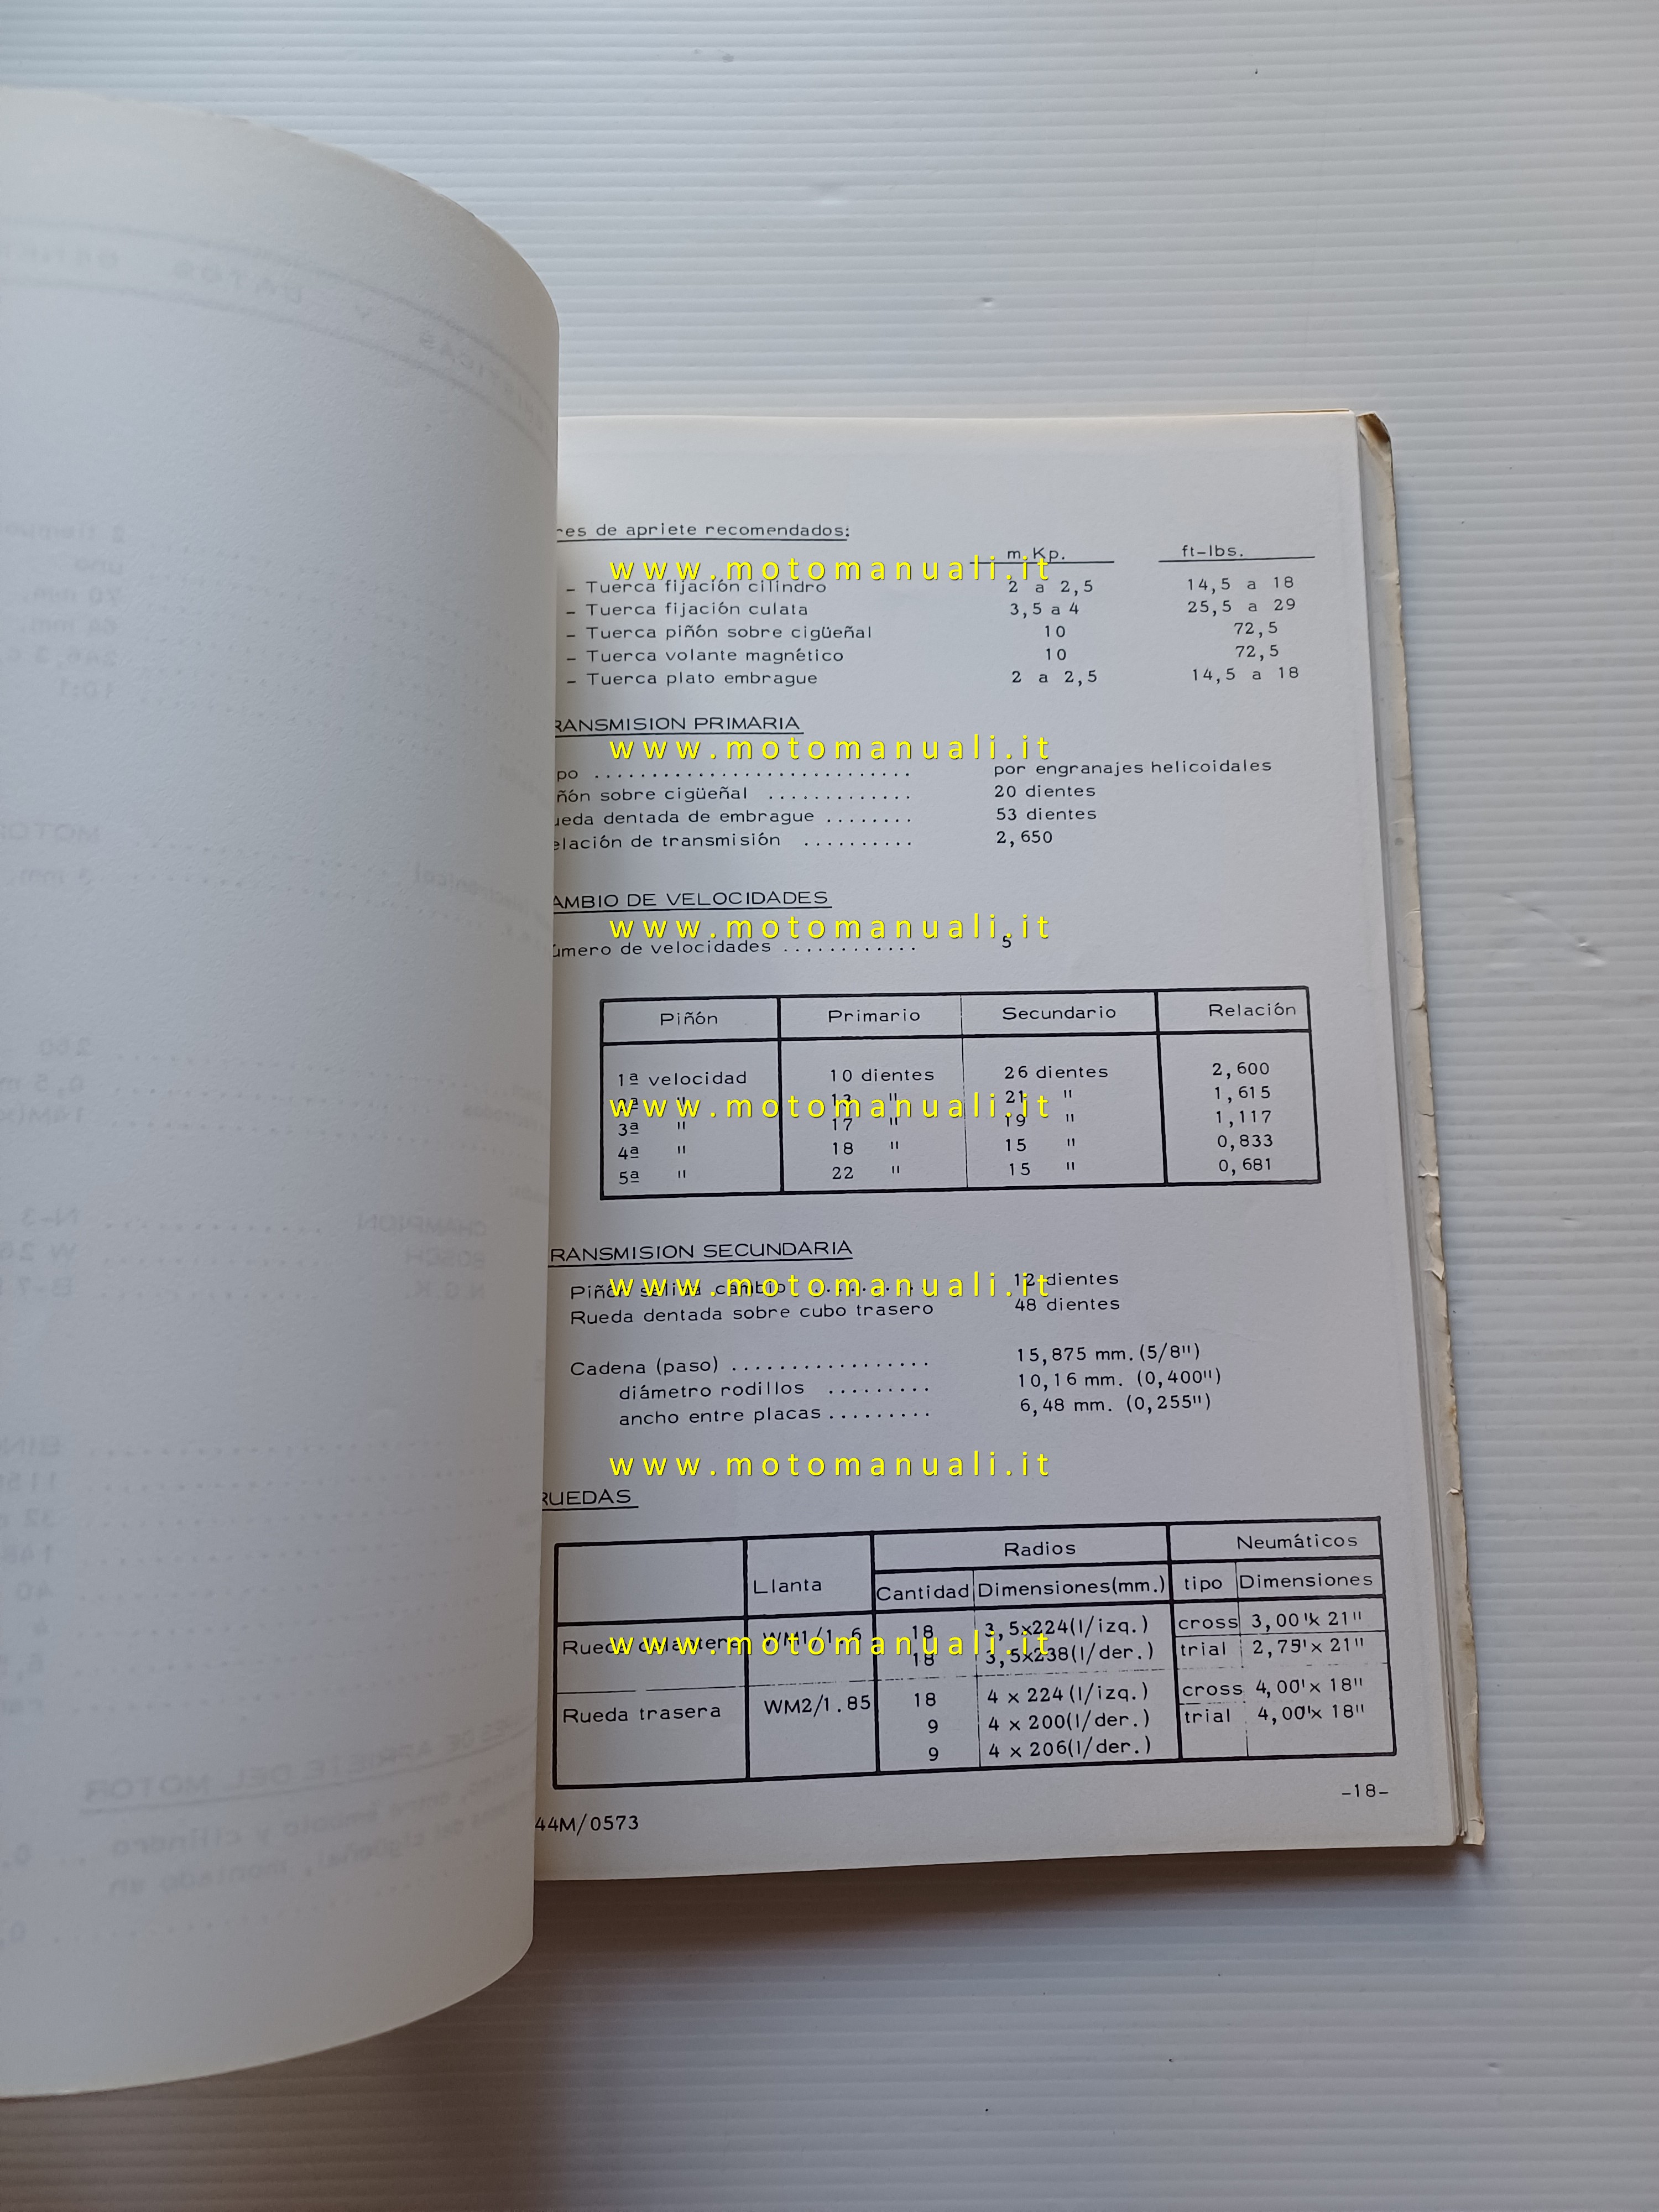 res de apriete recomendados:
m.Kp. ft-lbs.
www.motomanuali.it
- Tuerca fijación cilindro 2 a 2,5 14,5 a 18
- Tuerca fijación culata 3,5 a 4 25,5 a 29
- Tuerca piñón sobre cigüeñal 10 72,5
- Tuerca volante magnético 10 72,5
- Tuerca plato embrague 2 a 2,5 14,5 a 18
RANSMISION PRIMARIA
www.motomanuali.it
po ............................ por engranajes helicoidales
ñón sobre cigüeñal ............. 20 dientes
ueda dentada de embrague ........ 53 dientes
elación de transmisión .......... 2,650
AMBIO DE VELOCIDADES
www.motomanuali.it
úmero de velocidades ............ 5
Piñón Primario Secundario Relación
1ª velocidad 10 dientes 26 dientes 2,600
2ª " 13 " 21 " 1,615
www.motomanuali.it
3ª " 17 " 19 " 1,117
4ª " 18 " 15 " 0,833
5ª " 22 " 15 " 0,681
RANSMISION SECUNDARIA
Piñón salida cambio .......... 12 dientes
www.motomanuali.it
Rueda dentada sobre cubo trasero 48 dientes
Cadena (paso) ................. 15,875 mm. (5/8")
diámetro rodillos ......... 10,16 mm. (0,400")
ancho entre placas ......... 6,48 mm. (0,255")
www.motomanuali.it
RUEDAS
Radios Neumáticos
Llanta Cantidad Dimensiones(mm.) tipo Dimensiones
Rueda delantera WM1/1.6 18 3,5x224(l/izq.) cross 3,00"x 21"
www.motomanuali.it
18 3,5x238(l/der.) trial 2,75"x 21"
Rueda trasera WM2/1.85 18 4 x 224(l/izq.) cross 4,00"x 18"
9 4 x 200(l/der.) trial 4,00"x 18"
9 4 x 206(l/der.)
-18-
44M/0573
www.motomanuali.it
www.motomanuali.it
www.motomanuali.it